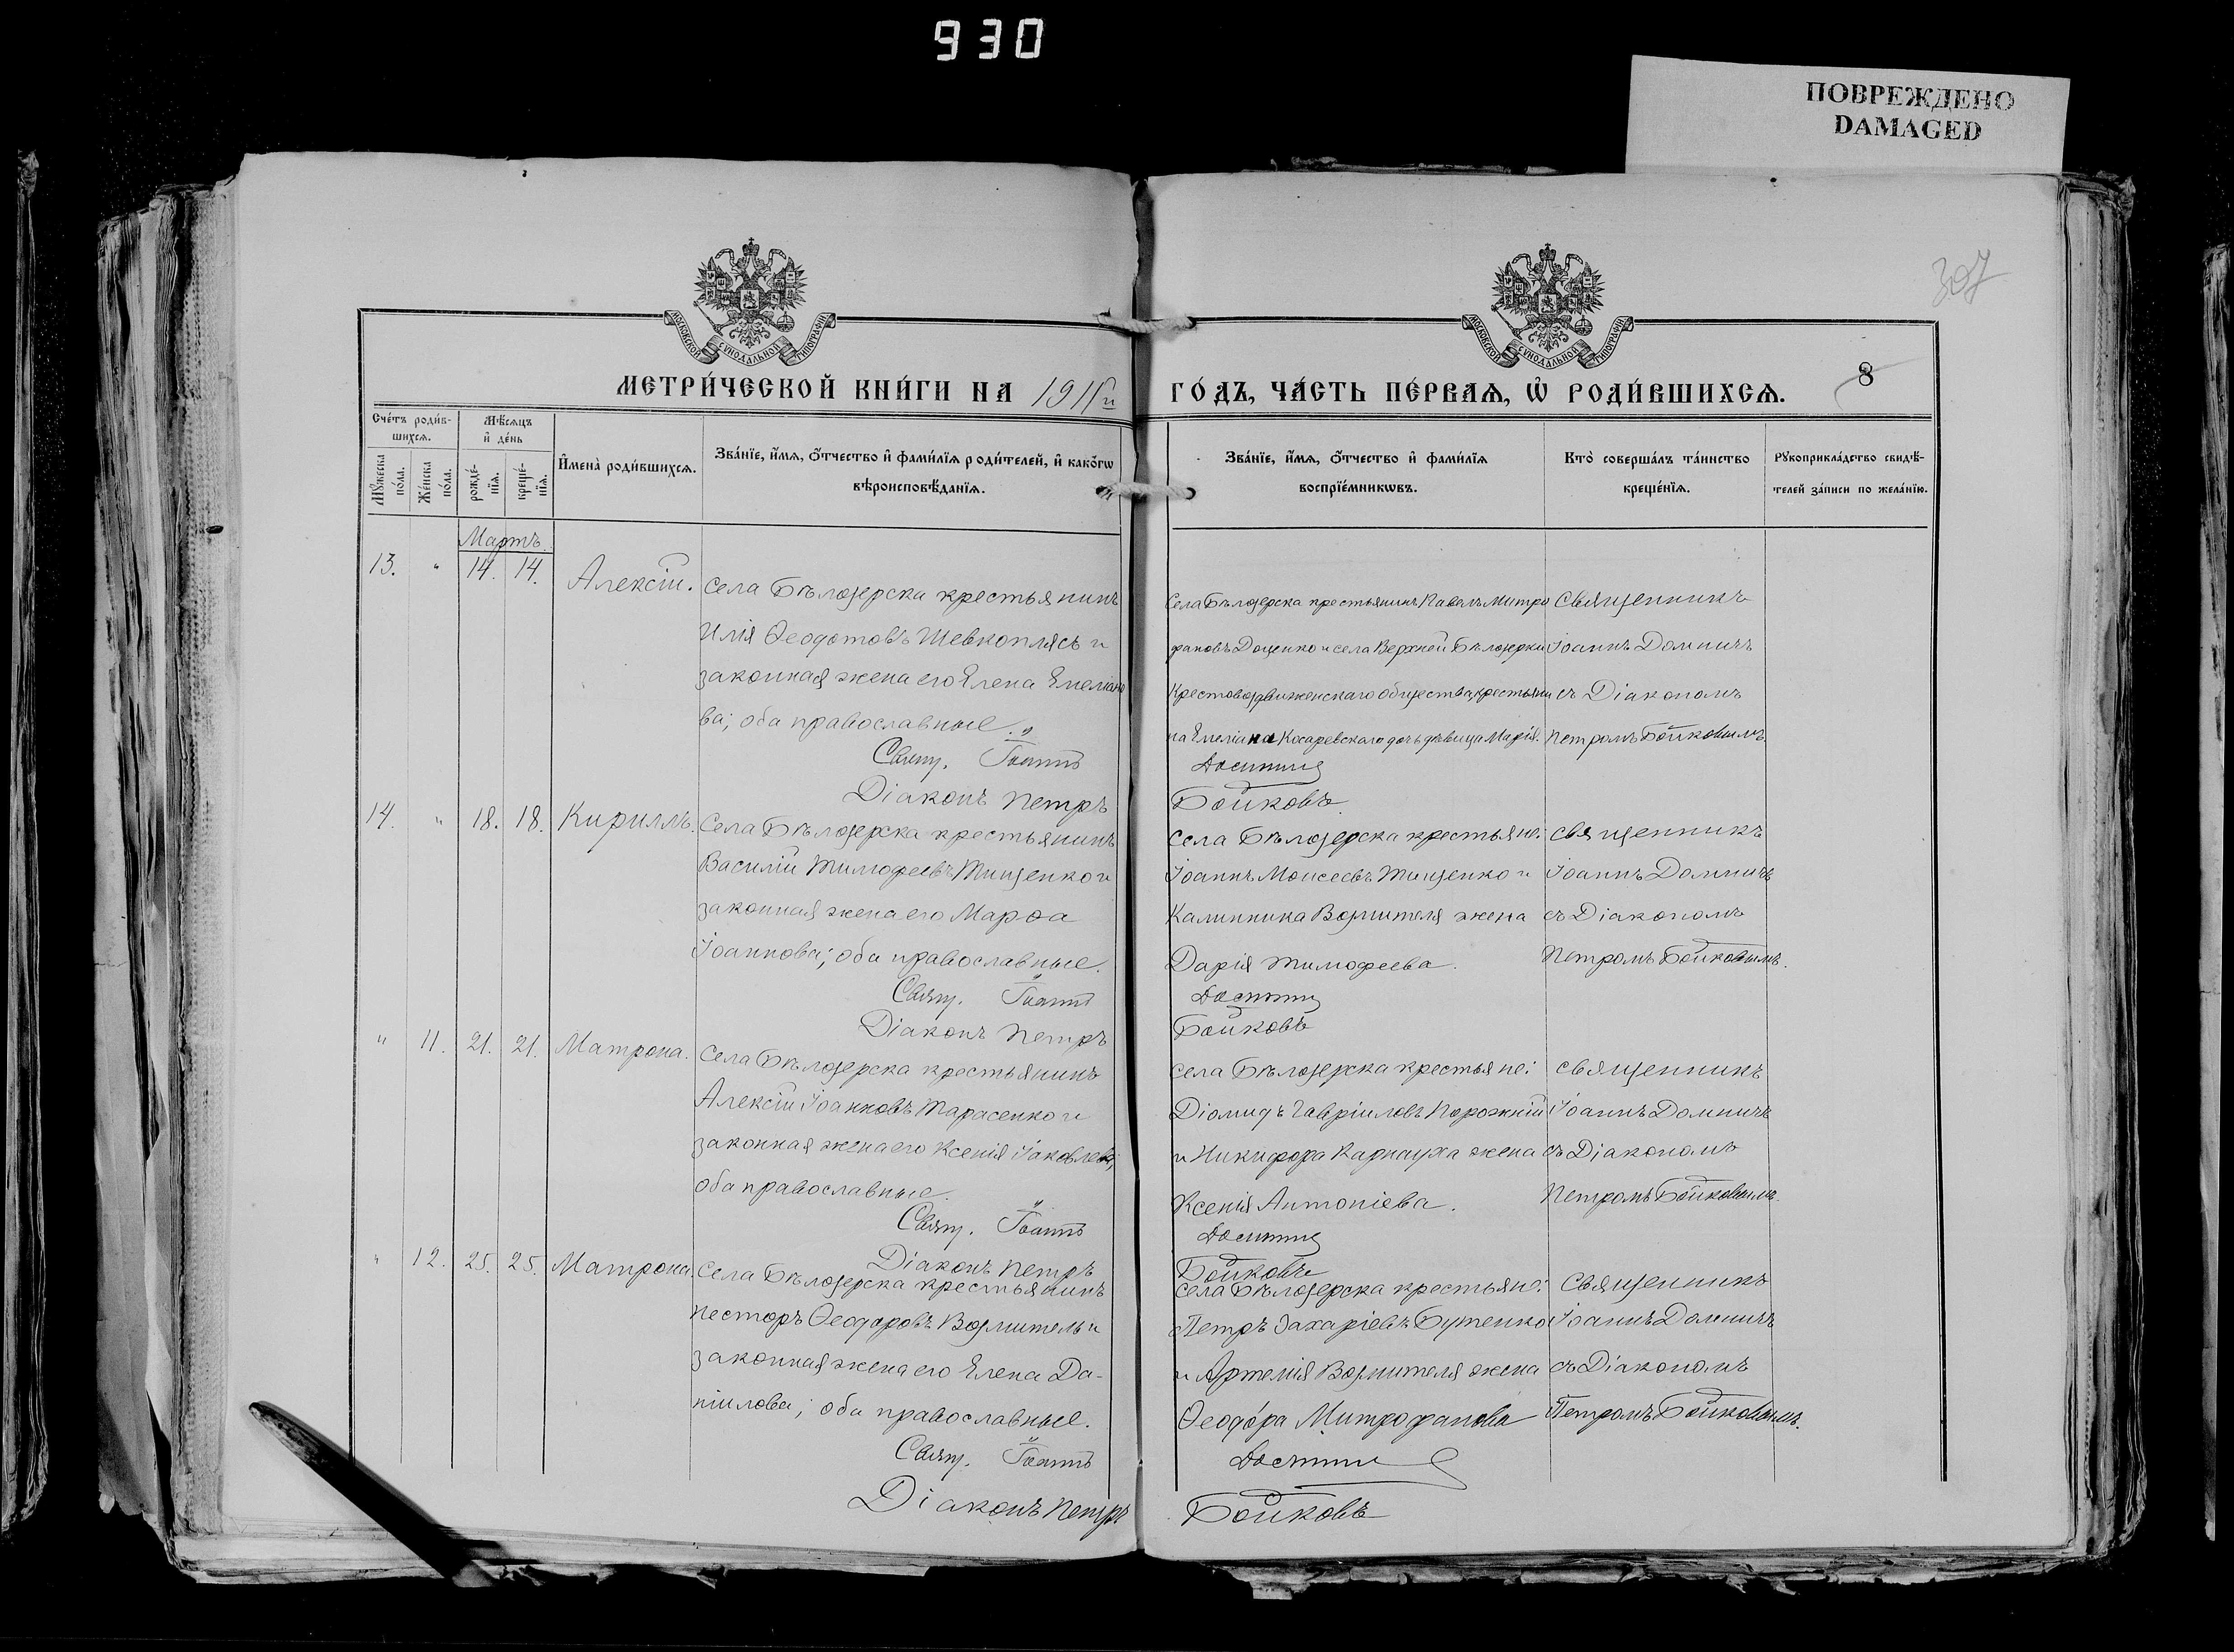 930
ПОВРЕЖДЕНО
DAMAGED
307
МОСКОВСКОЙ СѴНОДАЛЬНОЙ ТИПОГРАФІИ
МОСКОВСКОЙ СѴНОДАЛЬНОЙ ТИПОГРАФІИ
8
МЕТРИ́ЧЕСКОЙ КНИ́ГИ НА 191
ГО́ДЪ, ЧА́СТЬ ПЕ́РВАѦ, Ѡ РОДИ́ВШИХСѦ.
Сче́тъ роди́в-
шихсѧ.
Мѣ́сѧцъ
и҆ де́нь
Мꙋ́жеска
по́ла.
Же́нска
по́ла.
рожде́-
нїѧ.
креще́-
нїѧ.
И҆мена̀ роди́вшихсѧ.
Зва́нїе, и҆́мѧ, ѻ҆́тчество и҆ фами́лїѧ роди́телей, и҆ како́гѡ
вѣроисповѣ́данїѧ.
Зва́нїе, и҆́мѧ, ѻ҆́тчество и҆ фами́лїѧ
воспрїе́мникѡвъ.
Кто̀ соверша́лъ та́инство
креще́нїѧ.
Рꙋкоприкла́дство свидѣ́-
телей за́писи по жела́нїю.
Мартъ.
13. " 14. 14. Алексій.
села Бѣлозерска крестьянинъ
Илія Ѳеодотовъ Шевкоплясъ и
законная жена его Елена Емеліано
ва; оба православные.
Свящ. Іоаннъ
Діаконъ Петръ
Села Бѣлозерска крестьянинъ Павелъ Митро
фановъ Доценко и села Верхней Бѣлозерки
Крестовоздвиженскаго общества крестьяни
на Емеліана Косаревскаго дочь дѣвица Марія.
Домнич
Бойковъ
Священникъ
Іоаннъ Домничъ
съ Діакономъ
Петромъ Бойковымъ.
14. " 18. 18. Кириллъ.
Села Бѣлозерска крестьянинъ
Василій Тимофеевъ Тищенко и
законная жена его Марѳа
Іоаннова; оба православные.
Свящ. Іоаннъ
Діаконъ Петръ
Села Бѣлозерска крестьяне:
Іоаннъ Моисеевъ Тищенко и
Калинника Возмителя жена
Дарія Тимофеева.
Домнич
Бойковъ
священникъ
Іоаннъ Домничъ
съ Діакономъ
Петромъ Бойковымъ.
" 11. 21. 21. Матрона.
Села Бѣлозерска крестьянинъ
Алексій Іоанновъ Тарасенко и
законная жена его Ксенія Іаковлева;
оба православные.
Свящ. Іоаннъ
Діаконъ Петръ
села Бѣлозерска крестьяне:
Діомидъ Гавріиловъ Порожній
и Никифора Карнауха жена
Ксенія Антоніева.
Домнич
Бойковъ
священникъ
Іоаннъ Домничъ
съ Діакономъ
Петромъ Бойковымъ.
" 12. 25. 25. Матрона.
Села Бѣлозерска крестьянинъ
Несторъ Ѳеодоровъ Возмитель и
законная жена его Елена Да-
ніилова; оба православные.
Свящ. Іоаннъ
Діаконъ Петръ
Села Бѣлозерска крестьяне:
Петръ Захаріевъ Бутенко
и Артемія Возмителя жена
Ѳеодо́ра Митрофанова
Домнич
Бойковъ
Священникъ
Іоаннъ Домничъ
съ Діакономъ
Петромъ Бойковымъ.